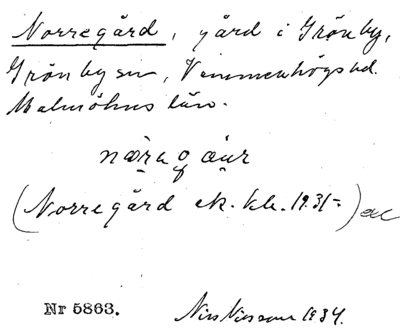 Norregård, gård i Grönby,
Grönby sn, Vemmenhögs hd.
Malmöhus län.
(Norregård ek. kb. 1931-)
Nr 5863.
Nils Nilsson 1934.